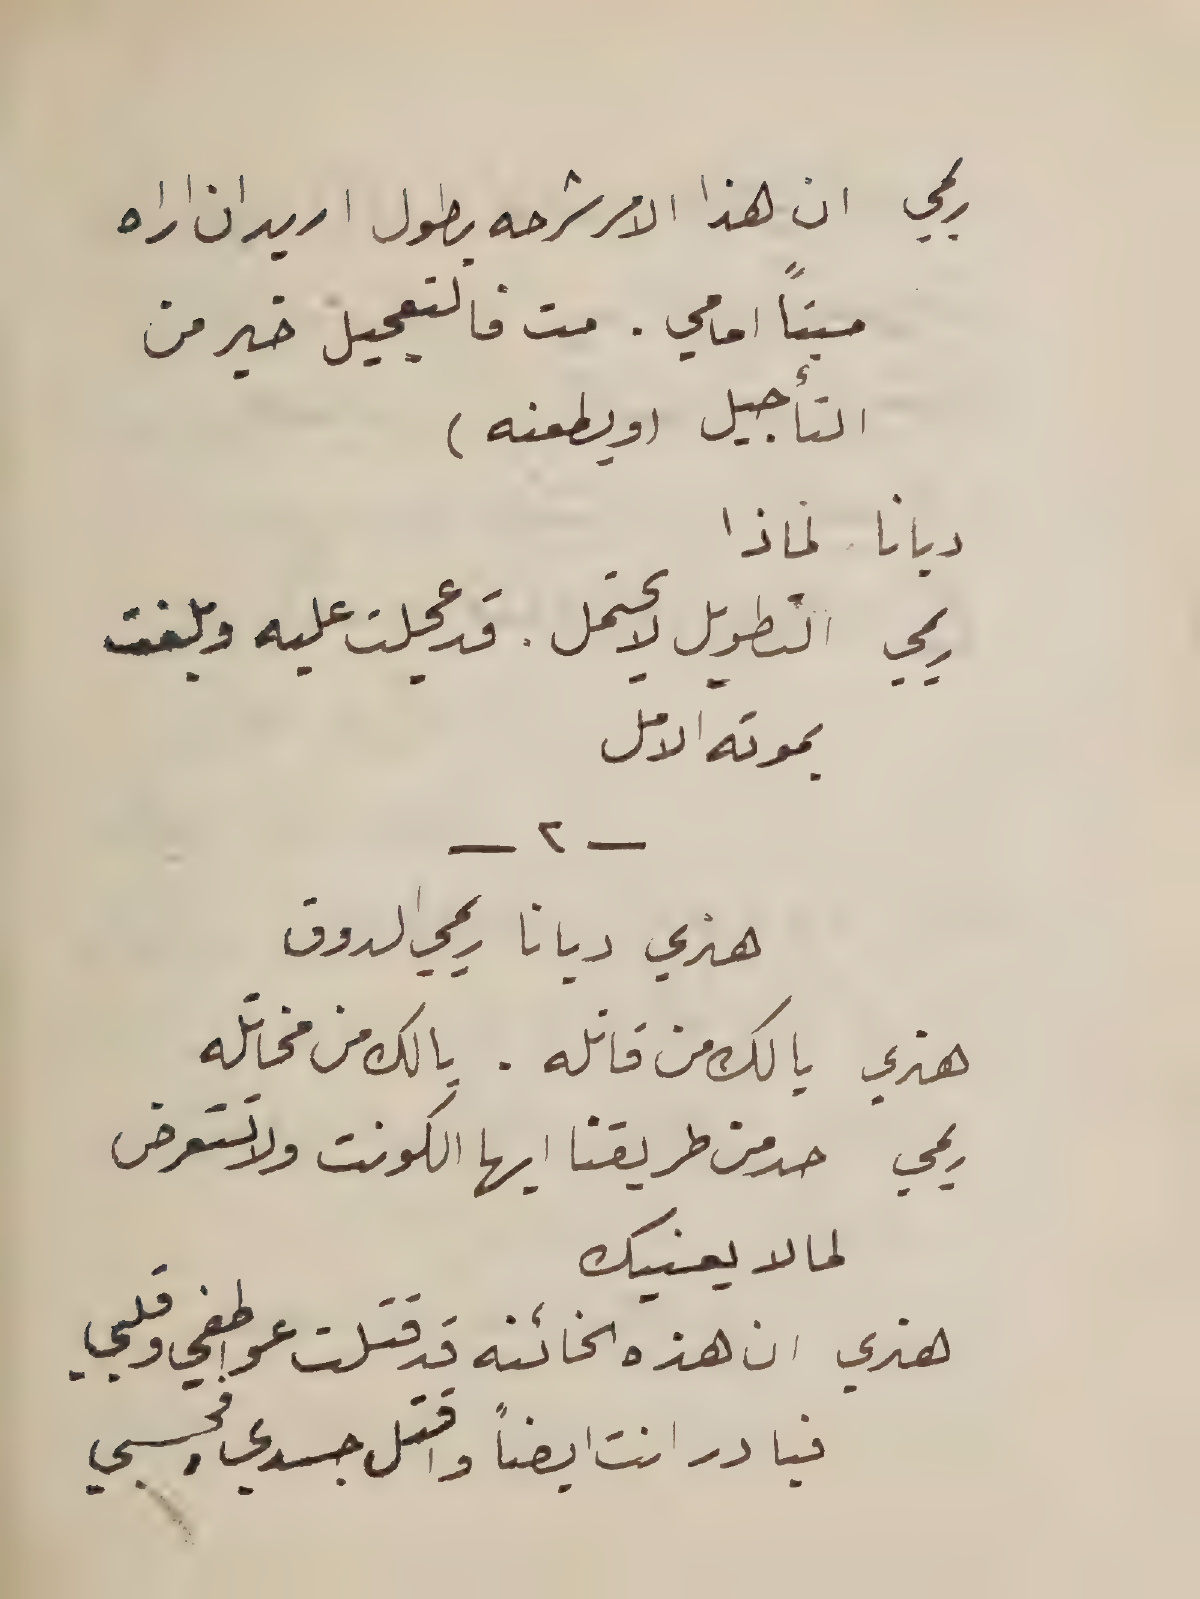 ريمي ان هذا الامر شرحه يطول اريد ان اراه
ميتاً امامي . مت فالتعجيل خير من
التأجيل (ويطعنه)
ديانا لماذا
ريمي التطويل لا يحتمل . قد عجلت عليه وبلغت
بموته الامل
— ٢ —
هنري ديانا ريمي الدوق
هنري يا لك من قاتله . يا لك من مخاتله
ريمي حد من طريقنا ايها الكونت ولا تتعرض
لما لا يعنيك
هنري ان هذه الخائنه قد قتلت عواطفي وقلبي
فبادر انت ايضاً واقتل جسدي فحسبي